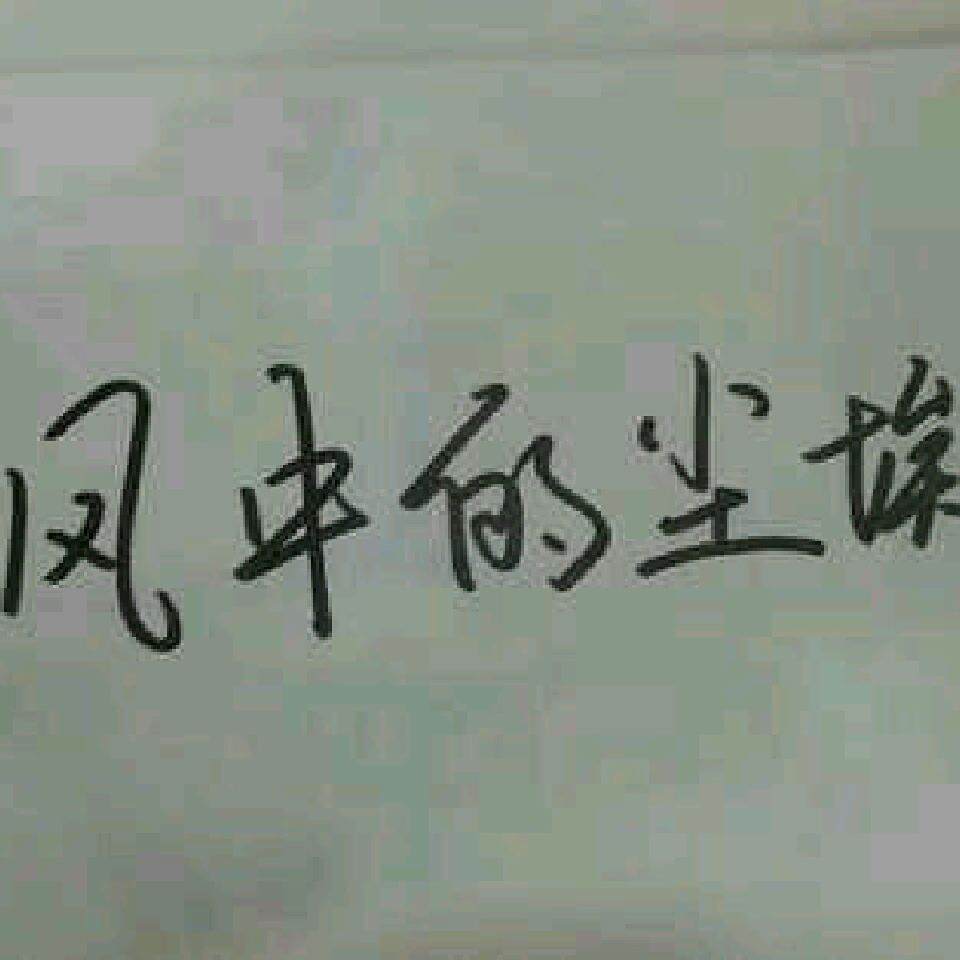 风中的尘埃